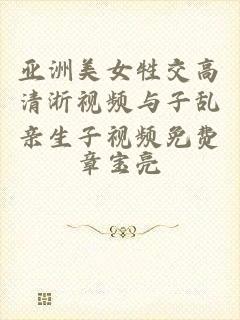 亚洲美女牲交高
清淅视频与子乱
亲生子视频免费
章宝亮